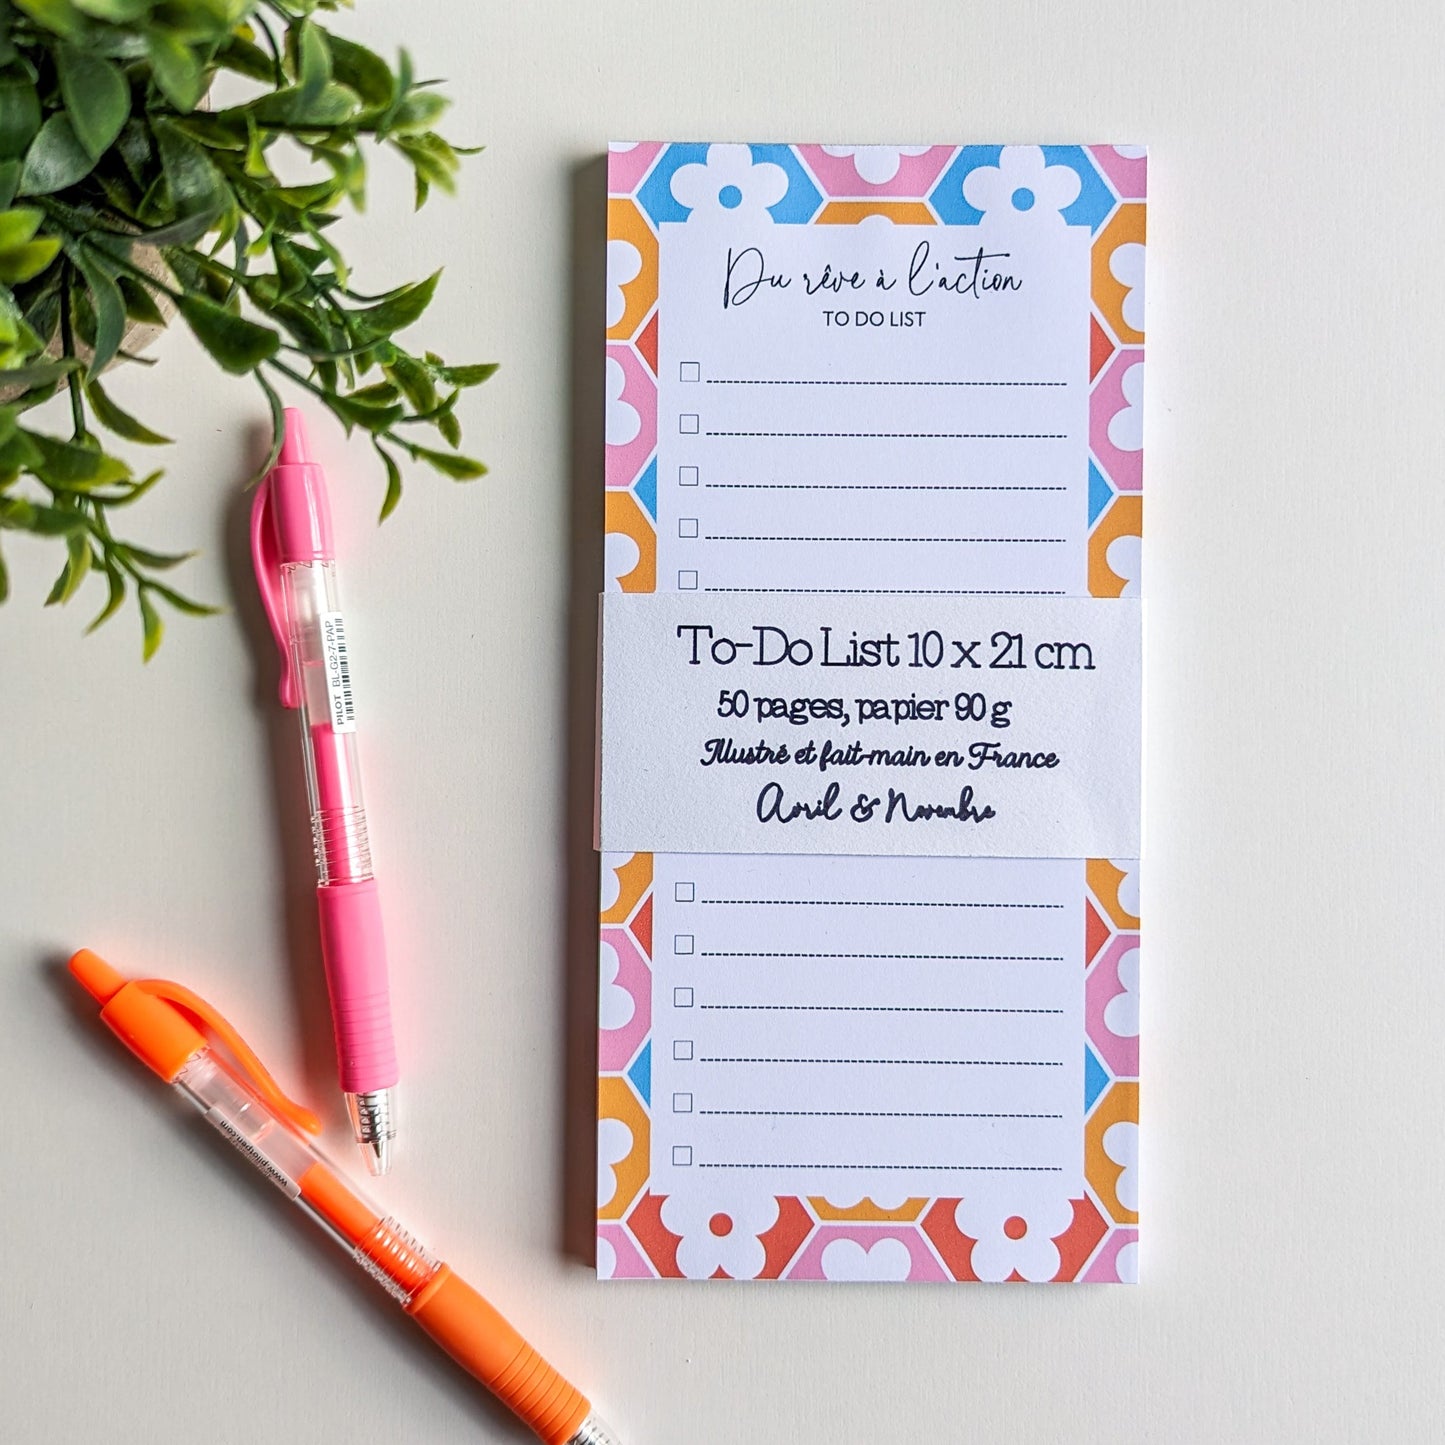 Du rêve à l'action
TO DO LIST
To-Do List 10 x 21 cm
50 pages, papier 90 g
Illustré et fait-main en France
Avril & Novembre
PILOT BL-G2-7-PAP
www.pilotpen.com